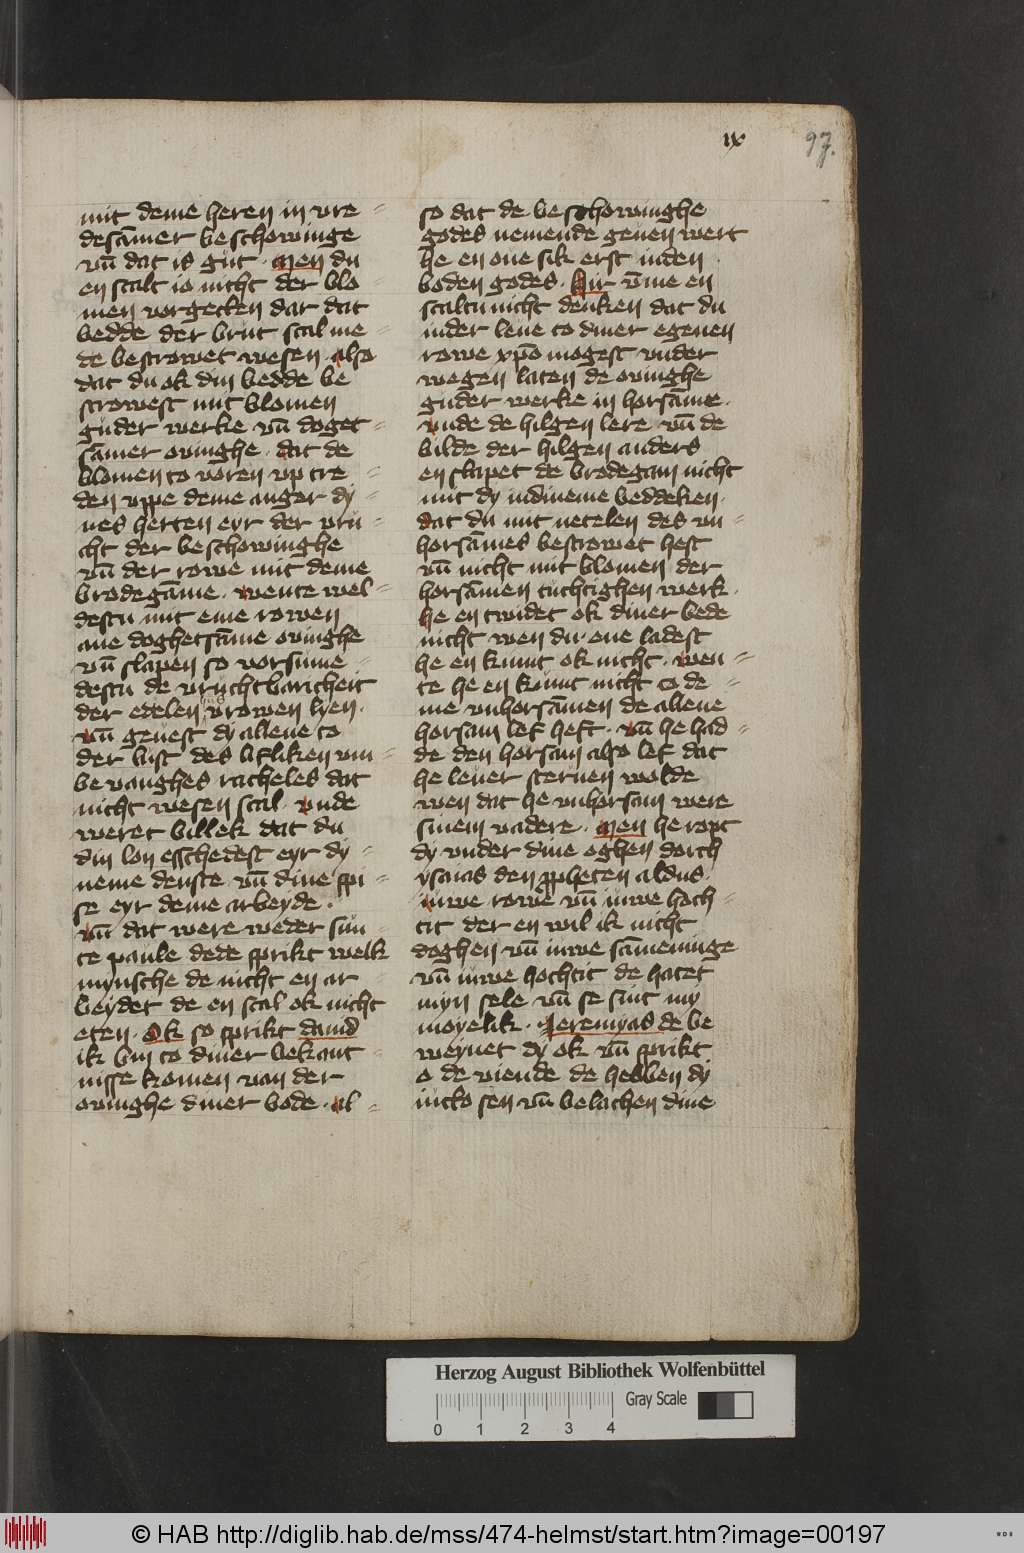 ix 97.
mit deme heren in vre=
desāmer beschowinge
vn̄ dat is gut. Men du
en scalt io nicht der blo=
men vorgeten dar dat
bedde der brut scal me=
de bestrowet wesen. also
dat du ok din bedde be
strowest mit blomen
guder werke vn̄ doget=
sāmer ovinghe. dat de
blomen to voren vp tre=
den vppe deme anger dy=
nes herten eyr der vru=
cht der beschowinghe
vn̄ der rowe mit deme
brodegāme. wente wel=
destu mit eme rowen
ane doghetsāme ovinghe
vn̄ slapen so vorsume=
destu de vruchtbaricheit
der edelen vrowen lyen.
vn̄ geuest dy allene to
der lust des lifliken vm=
be vanghes racheles dat
nicht wesen scal. vnde
weret billek dat du
din lon esschedest eyr dy=
neme denste vn̄ dine spi=
se eyr deme arbeyde.
vn̄ dat were weder sun=
te paule dede sprikt welk
mynsche de nicht en ar=
beydet de en scal ok nicht
eten. Ok so sprikt dauid
ik bin to diner bekant=
nisse komen van der
ovinghe diner bode. al=
so dat de beschowinghe
godes nemende geuen wert
he en oue sik erst inden
boden godes. Hir vm̄e en
scaltu nicht denken dat du
inder leue to diner egenen
rowe xp̄o mogest vnder
wegen laten de ovinghe
guder werke in horsāme.
vnde de hilgen lere vn̄ de
bilde der hilgen anders
en slapet de brodegam nicht
mit dy indineme beddeken.
dat du mit netelen des vn=
horsāmes bestrowet hest
vn̄ nicht mit blomen der
horsāmen tuchtighen werk.
he en twidet ok diner bede
nicht wen du ene ladest
he en kumt ok nicht. wen=
te he en kumt nicht to de=
me vnhorsāmen de allene
horsam lef heft. vn̄ he had=
de den horsam also lef dat
he leuer steruen wolde
wen dat he vnhorsam were
sinem vadere. Men he ropt
dy vnder dine oghen dorch
ysaias den ꝓpheten aldus.
iuwe rowe vn̄ iuwe hoch=
tit der en wil ik nicht
doghen vn̄ iuwe sāmeninge
vn̄ iuwe hochtit de hatet
myn sele vn̄ se sint my
moyelik. Jeremyas de be
weynet dy ok vn̄ sprikt
o de viende de hebben dy
sen vn̄ belachen dine
Herzog August Bibliothek Wolfenbüttel
Gray Scale
0 1 2 3 4
© HAB http://diglib.hab.de/mss/474-helmst/start.htm?image=00197